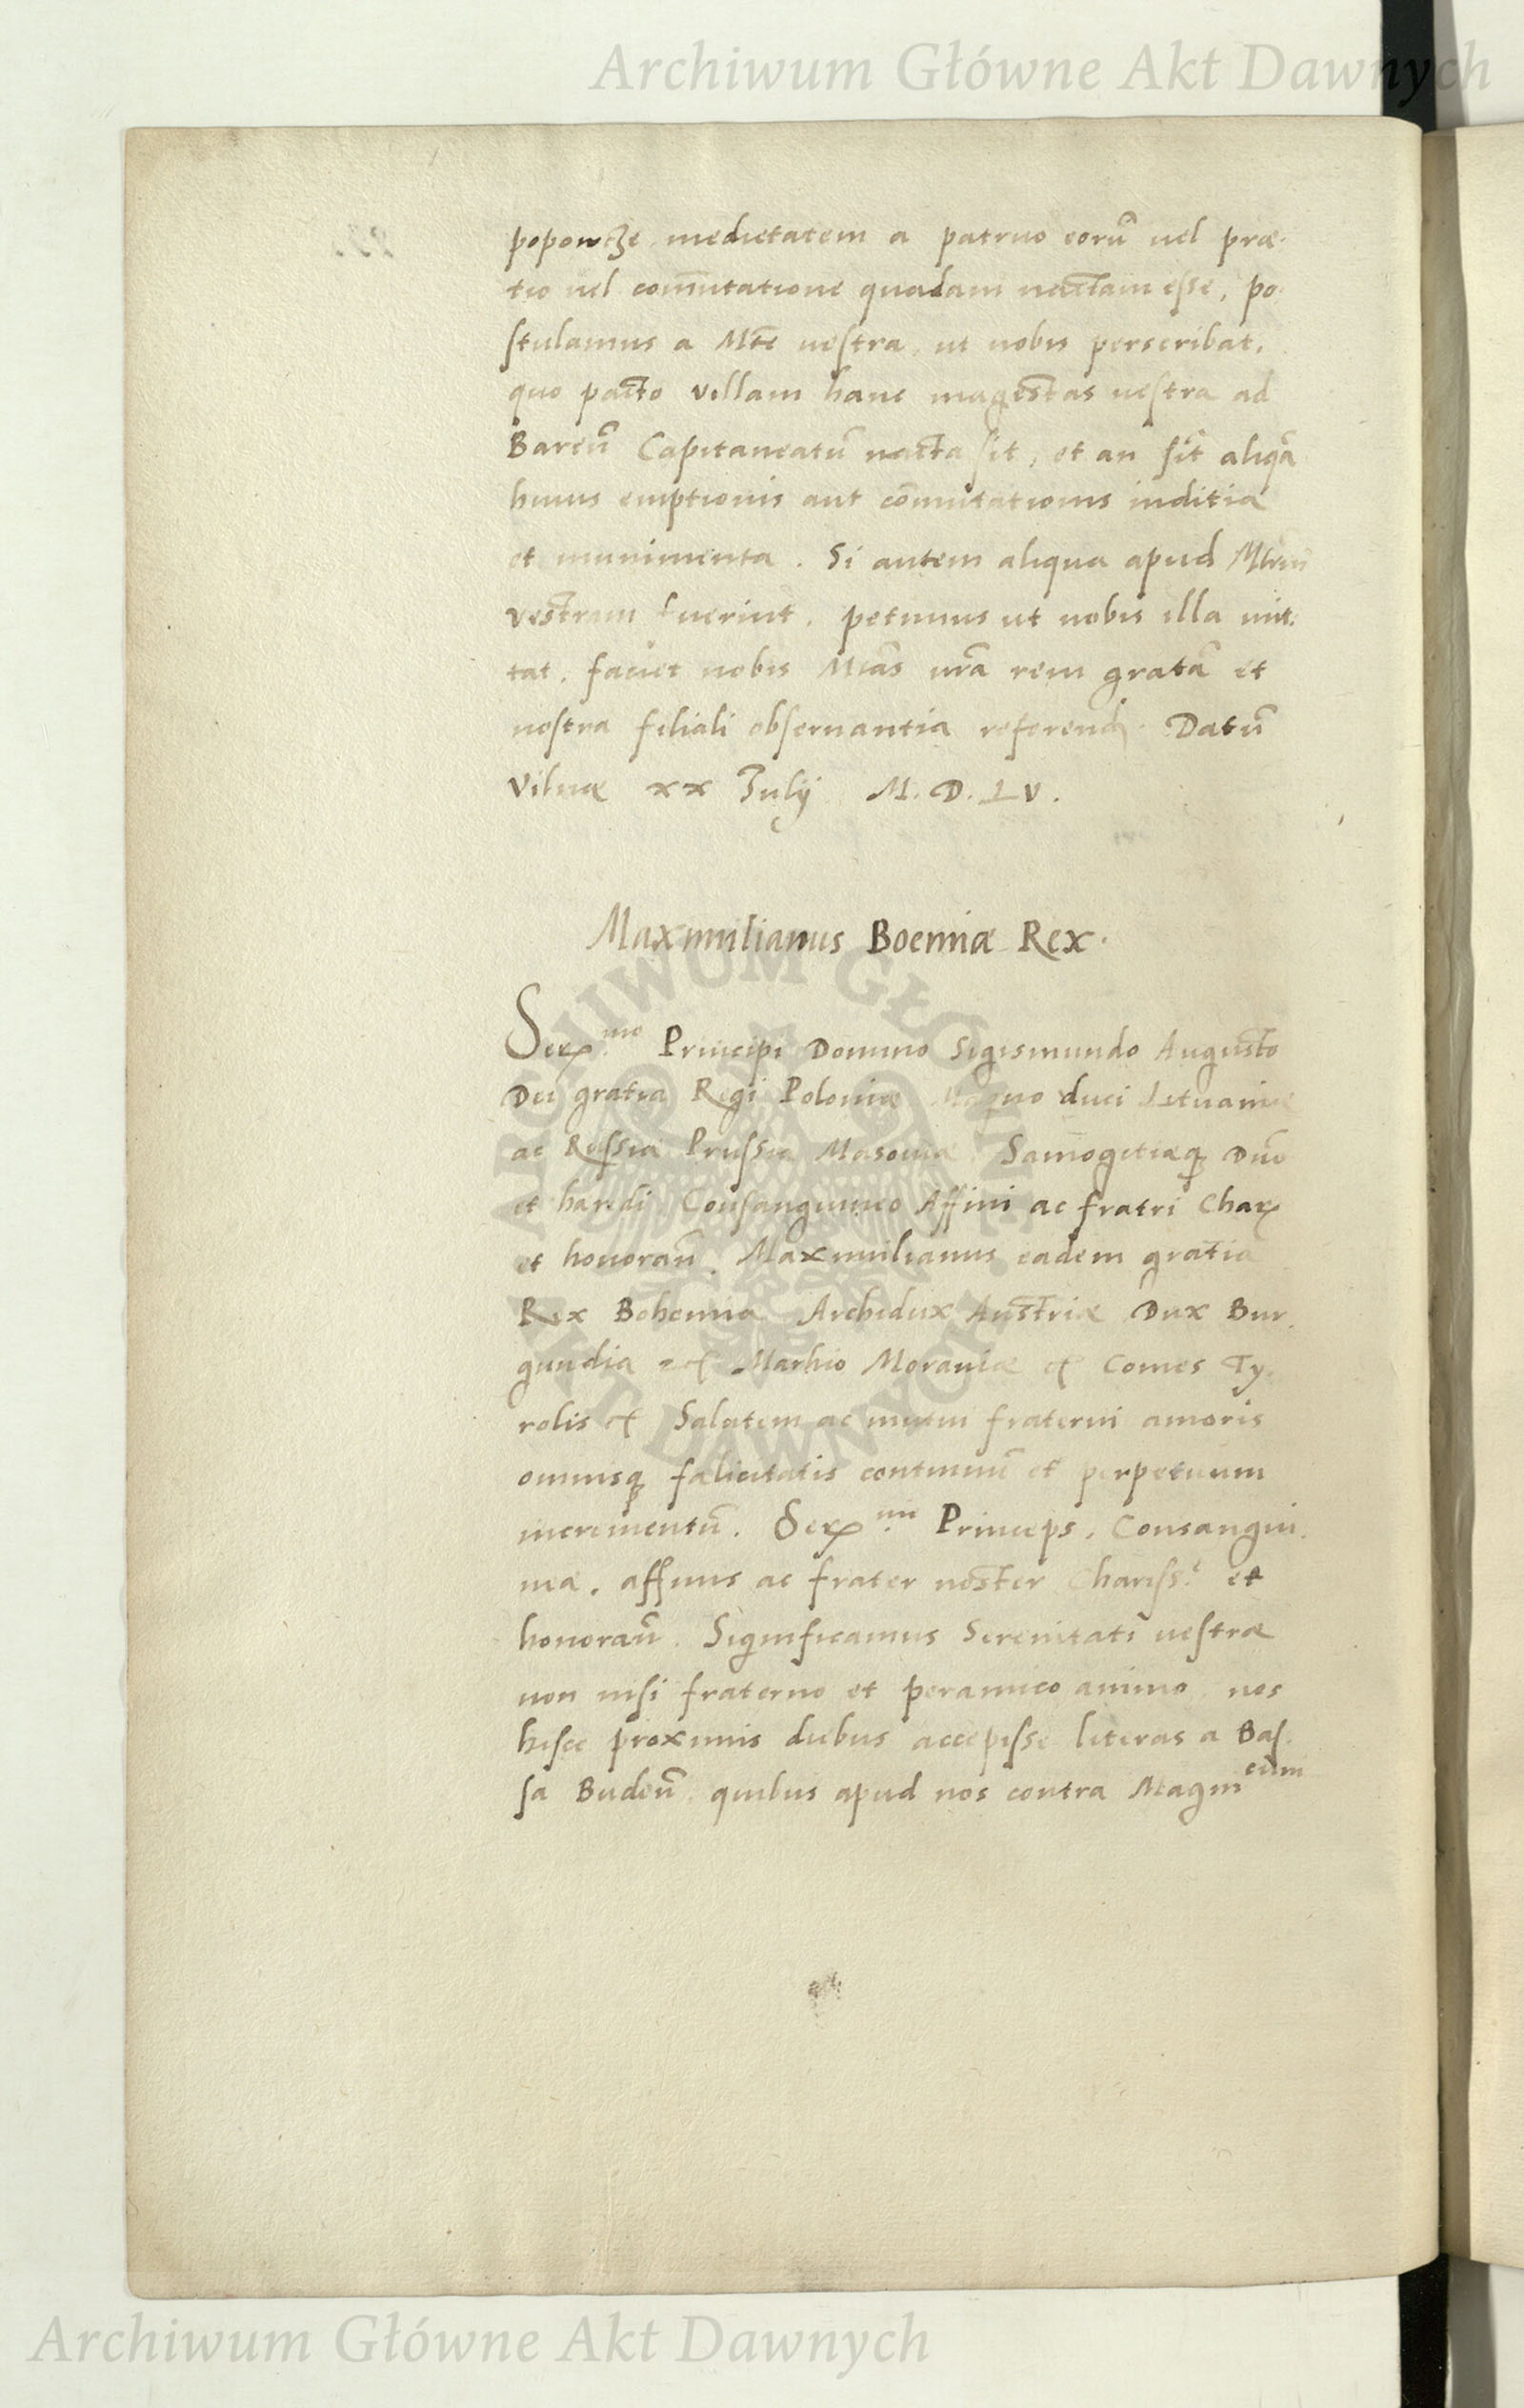 Archiwum Główne Akt Dawnych
popowcze medietatem a patruo eorū uel præ-
tio uel com̄utatione quadam nactam esse, po-
stulamus a Mte uestra, ut nobis perscribat,
quo pacto villam hanc magestas uestra ad
Bareñ Capitaneatū nacta sit, et an sit aliqā
huius emptionis aut com̄utationis inditia
et munimenta. Si autem aliqua apud Mtem
vestram fuerint, petimus ut nobis illa mit-
tat, faciet nobis Mtās urā rem gratā et
nostra filiali obseruantia referend. Datū
Vilnæ xx Julij M. D. LV.
Maxmilianus Boemiæ Rex.
Serᵐᵒ Principi Domino Sigismundo Augusto
Dei gratia Regi Poloniæ Magno duci Lituaniæ
ac Russiæ Prussiæ Masouiæ Samogitiæq Dn̄o
et hæredi, Consanguineo Affini ac fratri Char
et honorañ. Maxmilianus eadem gratia
Rex Bohemiæ Archidux Austriæ Dux Bur-
gundiæ Marhio Morauiæ Comes Ty-
rolis Salutem ac mutui fraterni amoris
omnisq fælicitatis continuū et perpetuum
incrementū. Serᵐⁱ Princeps, Consangui-
nee, affinis ac frater noster Chariss.ᵉ et
honorañ. Significamus Serenitati uestræ
non nisi fraterno et peramico animo, nos
hisce proximis diebus accepisse literas a Bas-
sa Budeñ, quibus apud nos contra Magnᶜᵘᵐ
ARCHIWUM GŁÓWNE AKT DAWNYCH
Archiwum Główne Akt Dawnych